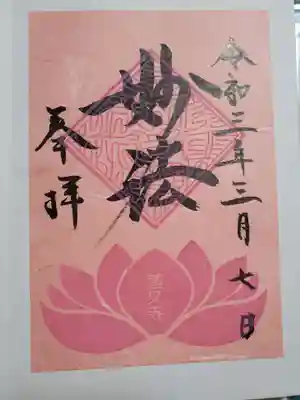 令和三年三月七日
妙法
奉拝
善見寺